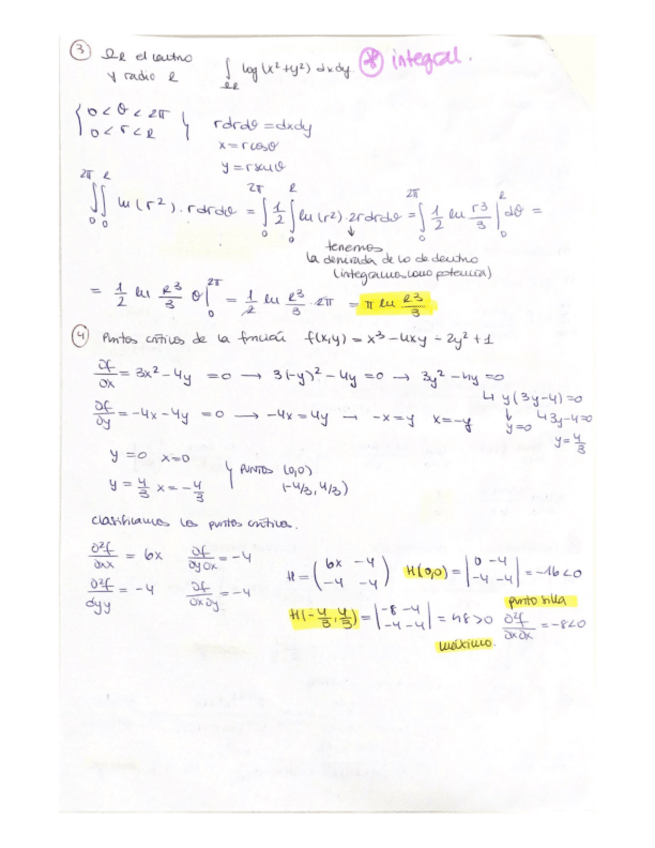 ③ el centro
y radio R ∫ log(x²+y²) dxdy ⊛ integral.
{ 0 < θ < 2π
0 < r < R } rdrdθ = dxdy
x = rcosθ
y = rsenθ
∫₀^2π ∫₀^R ln(r²)·rdrdθ = ∫₀^2π 1/2 ∫₀^R ln(r²)·2rdrdθ = ∫₀^2π 1/2 ln r³/3 |₀^R dθ =
↓
tenemos
la derivada de lo de dentro
(integramos como potencia)
= 1/2 ln R³/3 θ |₀^2π = 1/2 ln R³/3 · 2π = π ln R³/3
④ Puntos críticos de la función f(x,y) = x³ - 4xy - 2y² + 1
∂f/∂x = 3x² - 4y = 0 → 3(-y)² - 4y = 0 → 3y² - 4y = 0
↳ y(3y-4) = 0
∂f/∂y = -4x - 4y = 0 → -4x = 4y → -x = y x = -y ↓ y=0 ↳ 3y-4=0
y = 4/3
y = 0 x = 0
y = 4/3 x = -4/3 } PUNTOS (0,0)
(-4/3, 4/3)
Clasificamos los puntos críticos.
∂²f/∂xx = 6x ∂f/∂y∂x = -4
∂²f/dyy = -4 ∂f/∂x∂y = -4
H = (6x -4
-4 -4) H(0,0) = |0 -4
-4 -4| = -16 < 0
punto silla
H(-4/3, 4/3) = |-8 -4
-4 -4| = 48 > 0 ∂²f/∂x∂x = -8 < 0
máximo.